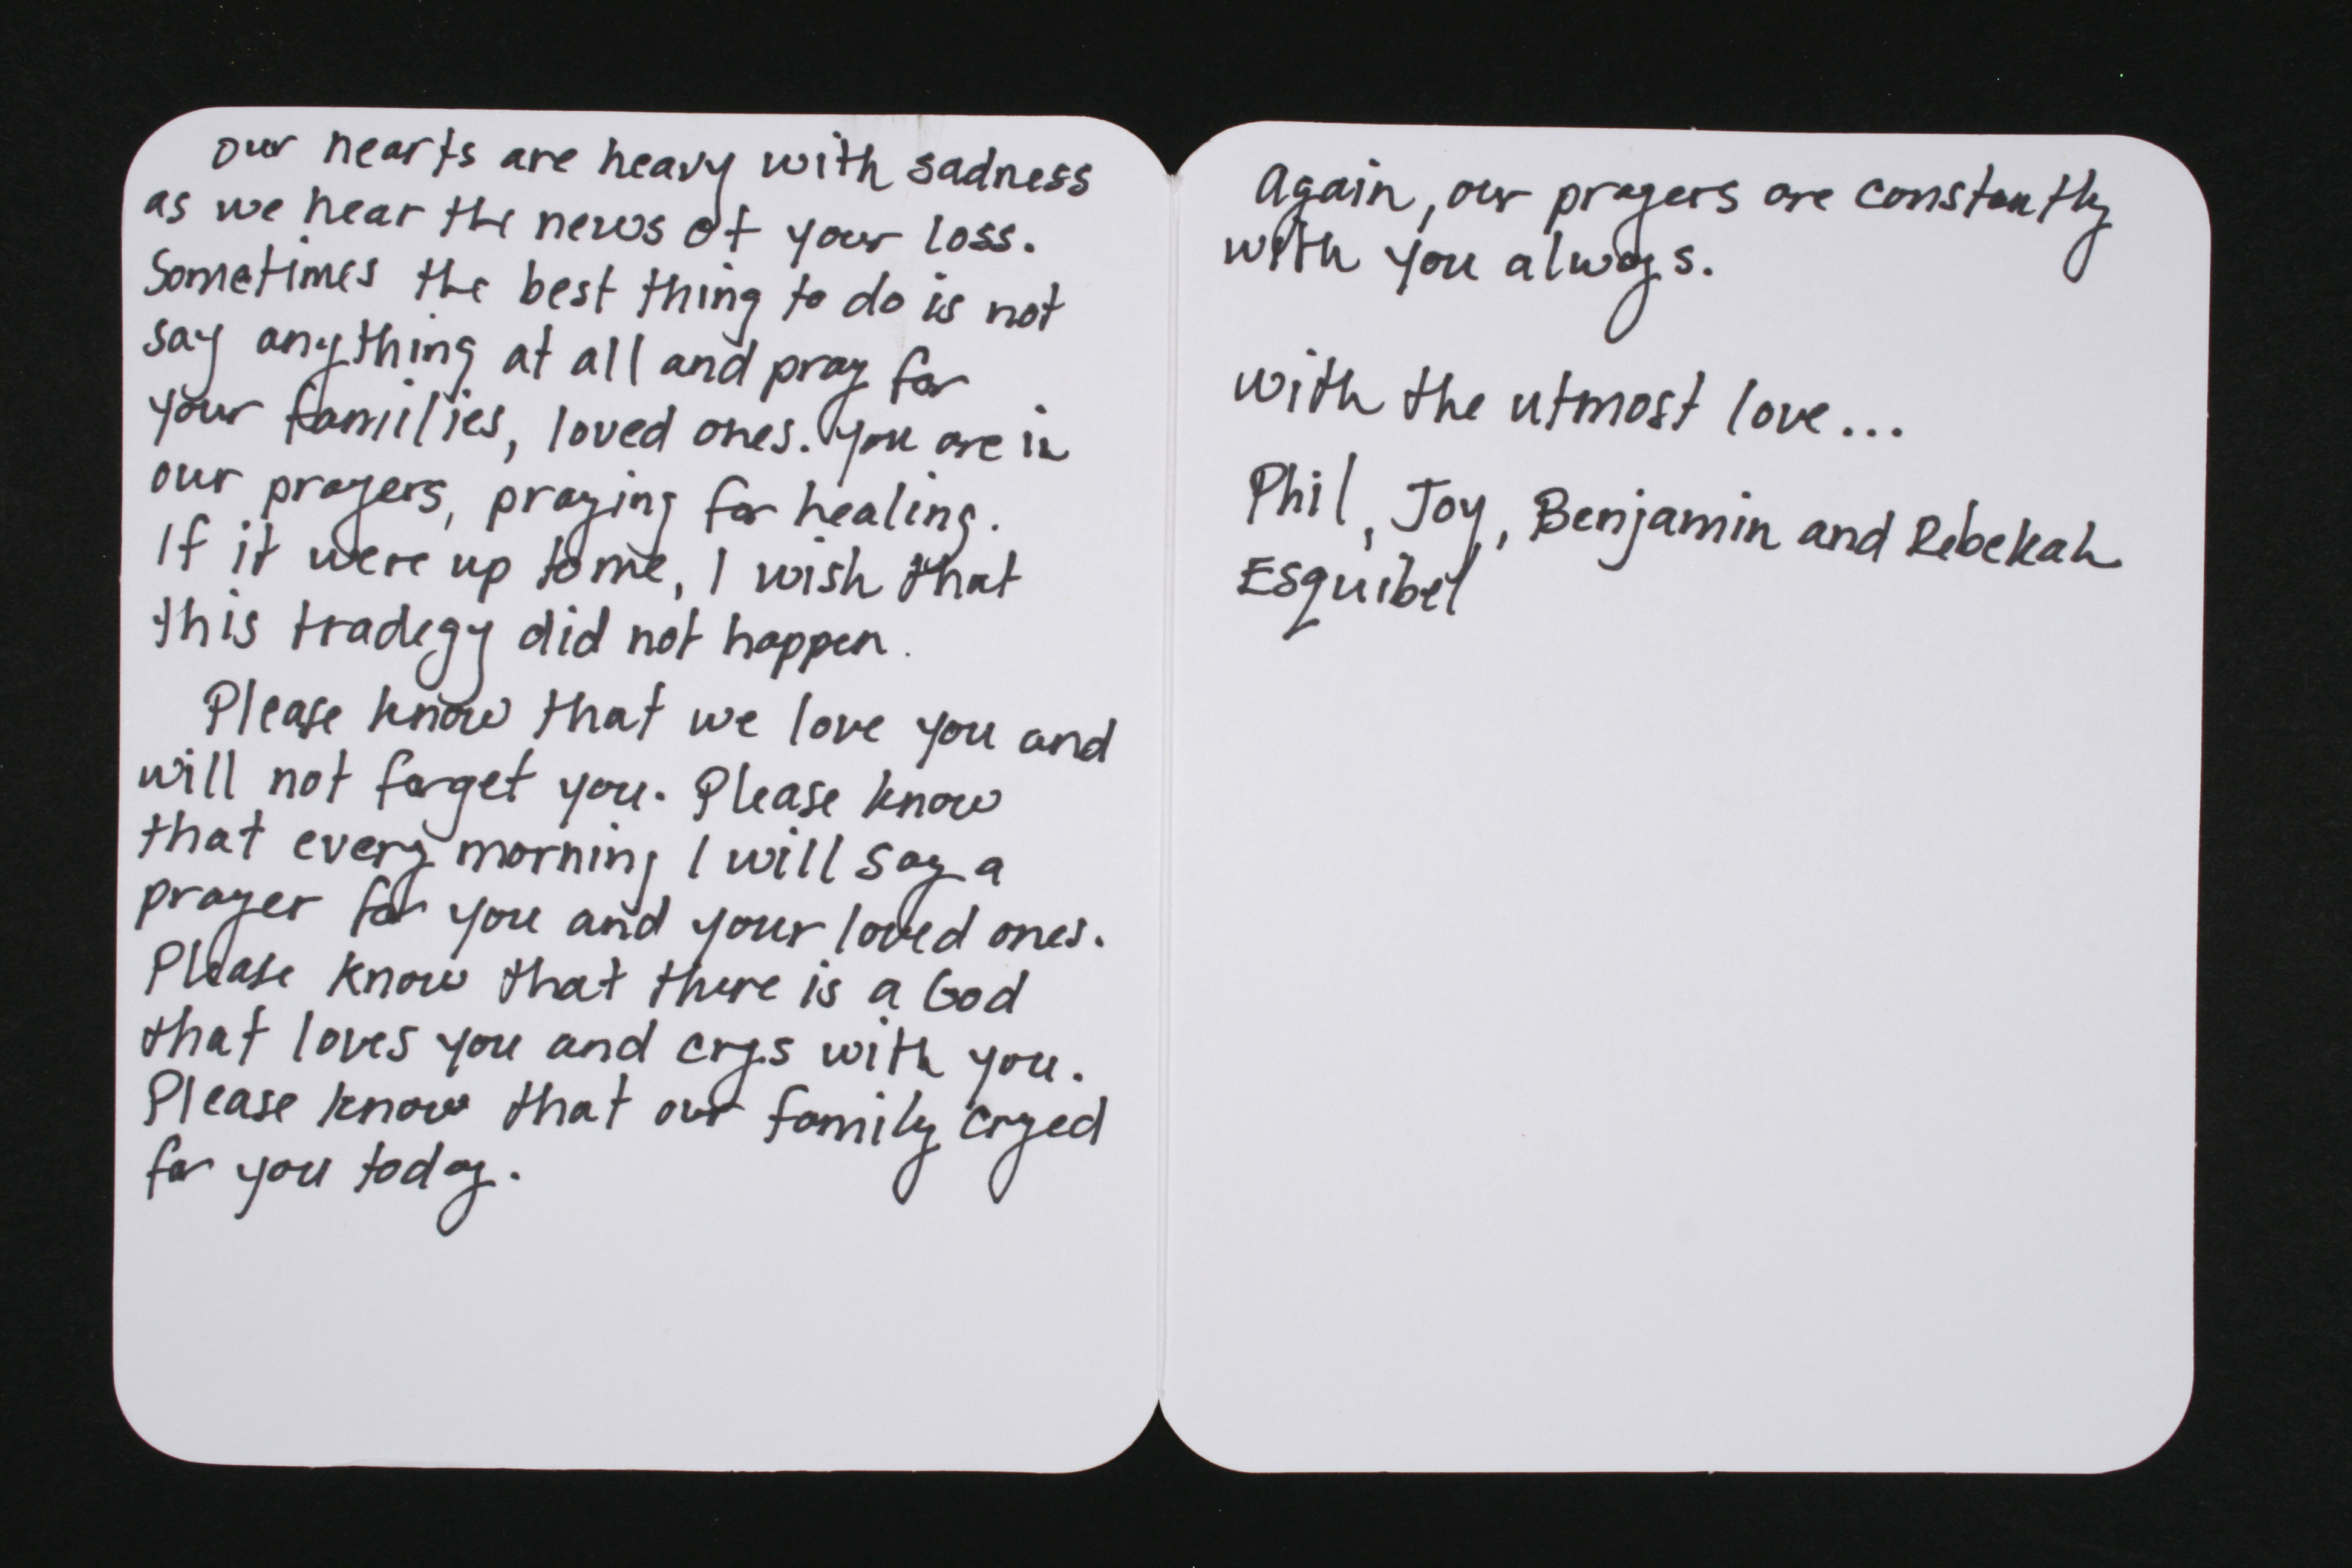 Our hearts are heavy with sadness
as we hear the news of your loss.
Sometimes the best thing to do is not
say anything at all and pray for
your families, loved ones. You are in
our prayers, praying for healing.
If it were up to me, I wish that
this tradegy did not happen.
Please know that we love you and
will not forget you. Please know
that every morning I will say a
prayer for you and your loved ones.
Please know that there is a God
that loves you and crys with you.
Please know that our family cryed
for you today.
Again, our prayers are constantly
with you always.
With the utmost love...
Phil, Joy, Benjamin and Rebekah
Esquibel